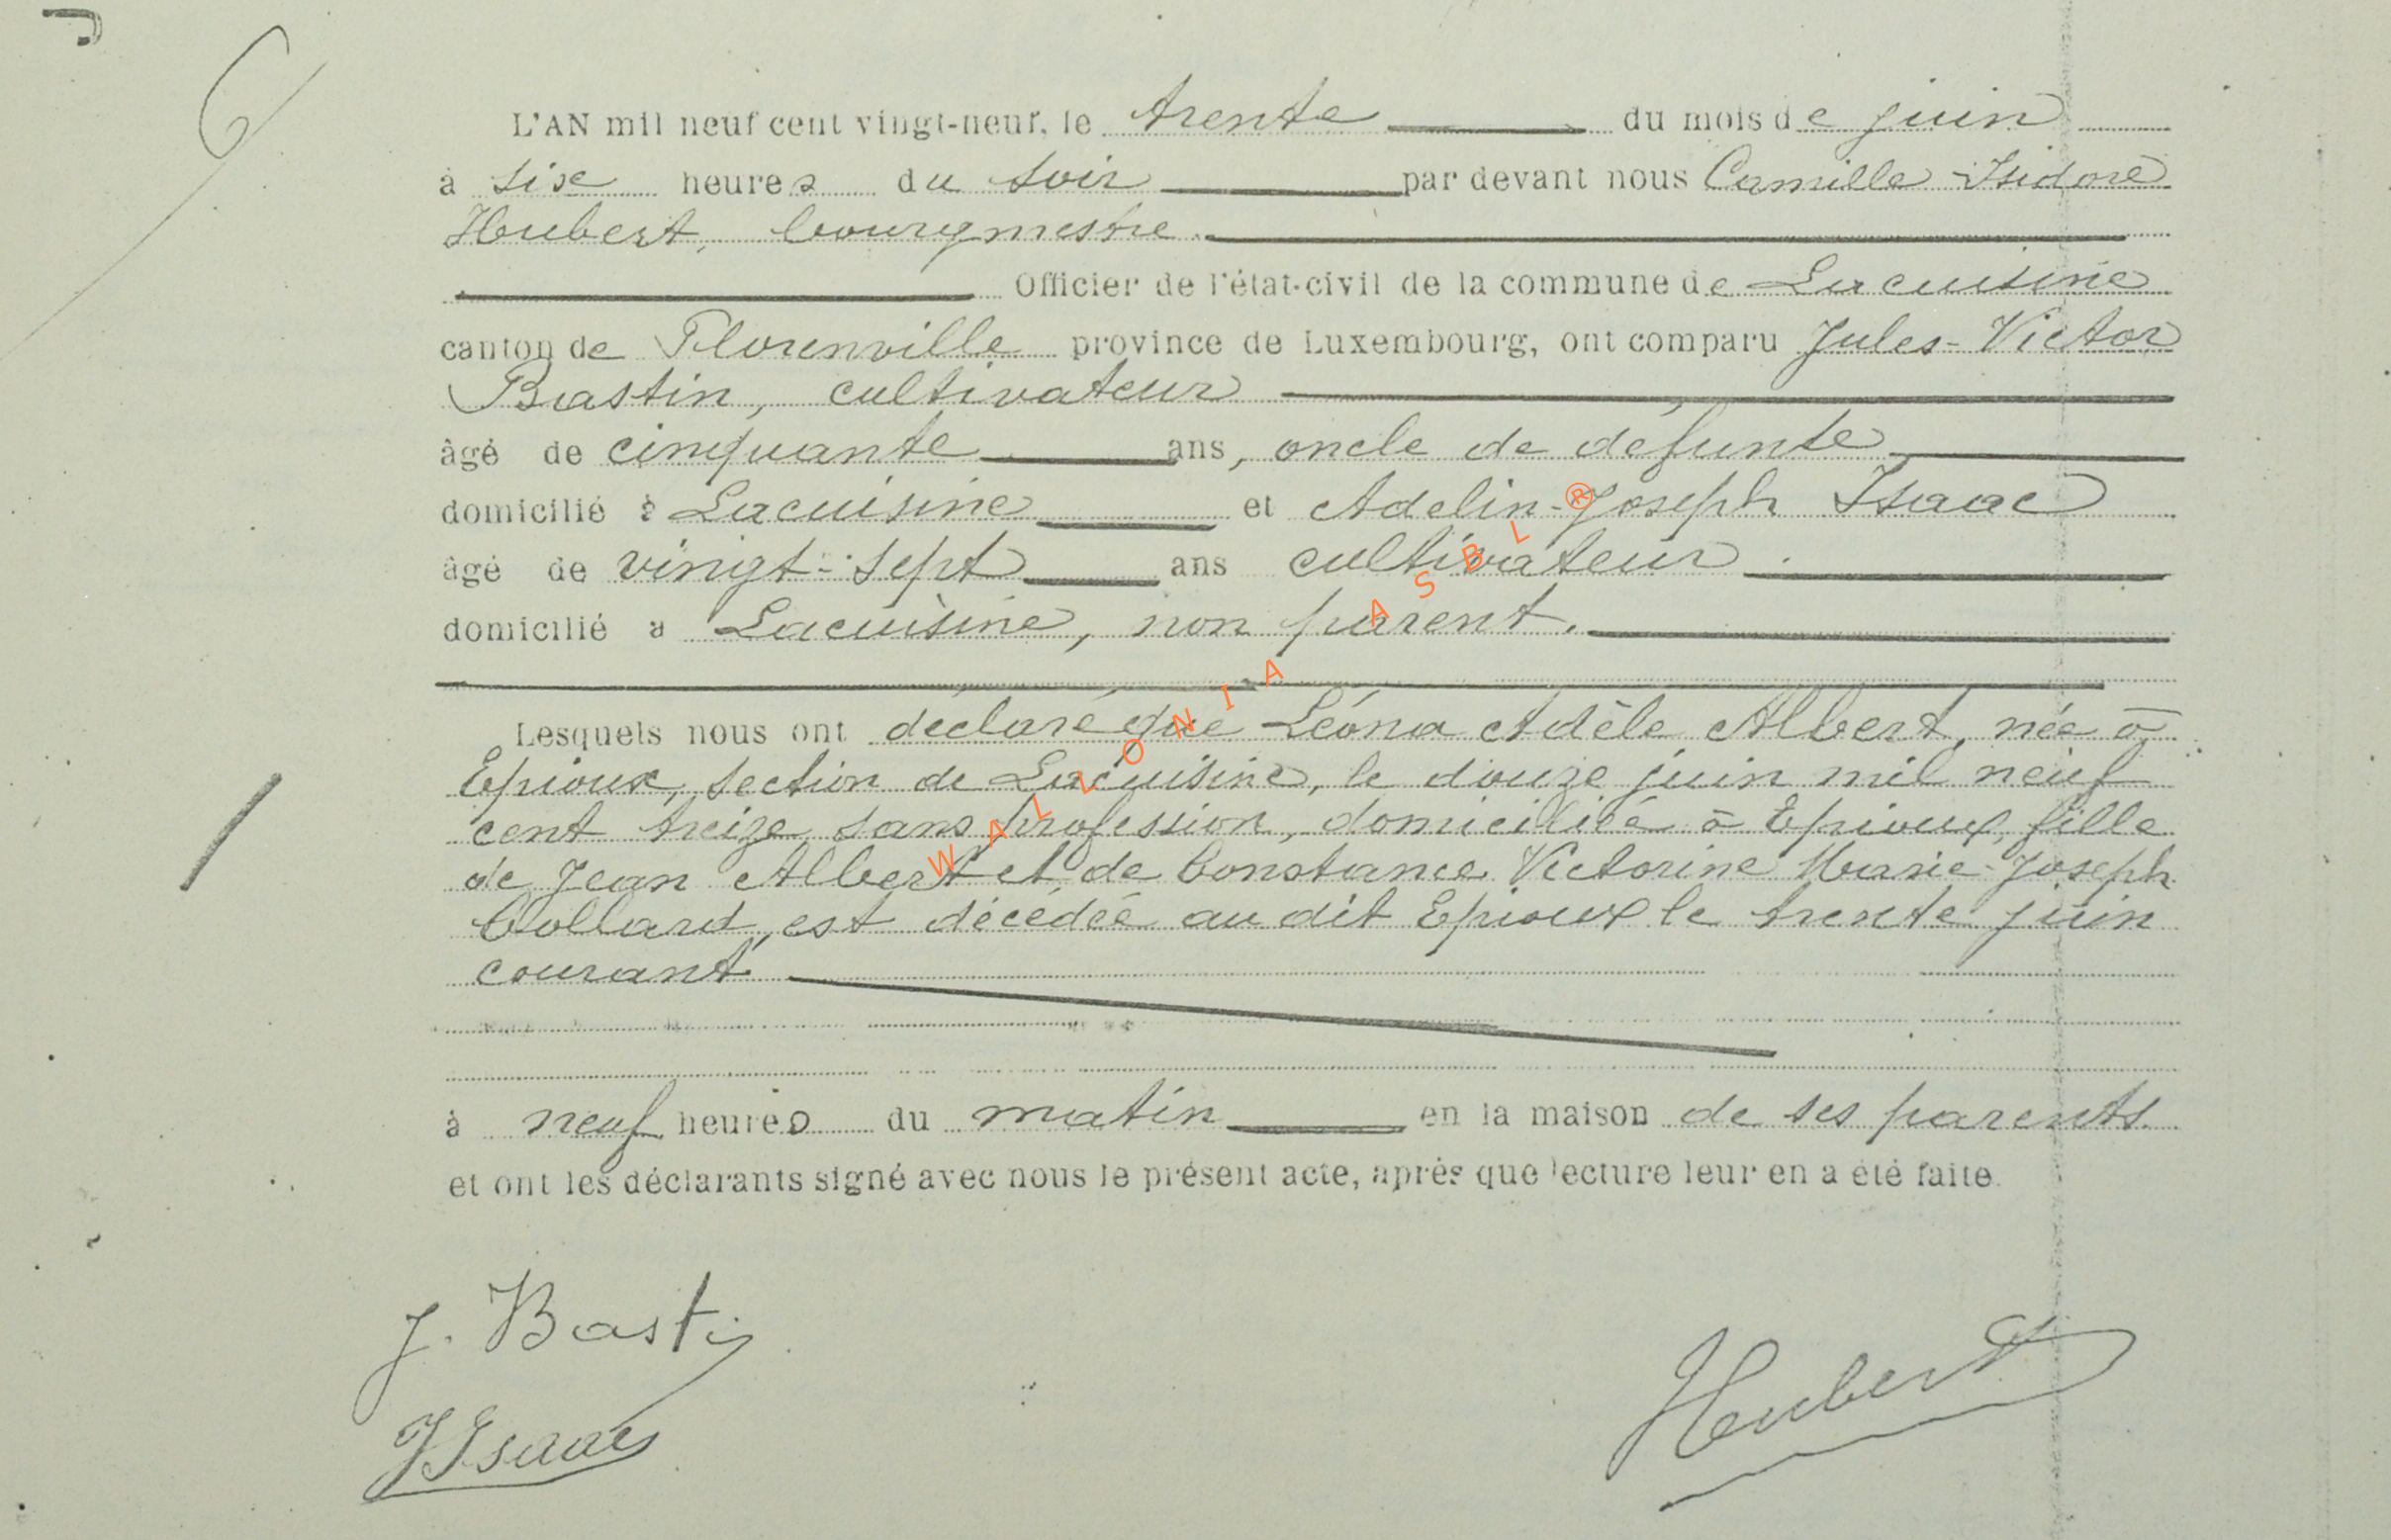 6
L'AN mil neuf cent vingt-neuf, le trente du mois de juin
à six heures du soir par devant nous Camille Isidore
Hubert, bourgmestre.
Officier de l'état-civil de la commune de Lacuisine
canton de Florenville province de Luxembourg, ont comparu Jules-Victor
Bastin, cultivateur
âgé de cinquante ans, oncle de défunte
domicilié à Lacuisine et Adelin-Joseph Isaac
âgé de vingt-sept ans cultivateur
domicilié à Lacuisine, non parent.
Lesquels nous ont déclaré que Léona Adèle Albert, née à
Epioux, section de Lacuisine, le douze juin mil neuf
cent treize, sans profession, domiciliée à Epioux, fille
de Jean Albert et de Constance Victorine Marie-Joseph
Collard, est décédée au dit Epioux le trente juin
courant
à neuf heures du matin en la maison de ses parents.
et ont les déclarants signé avec nous le présent acte, après que lecture leur en a été faite.
J. Bastin
J Isaac
Hubert
WALLONIA ASBL ®